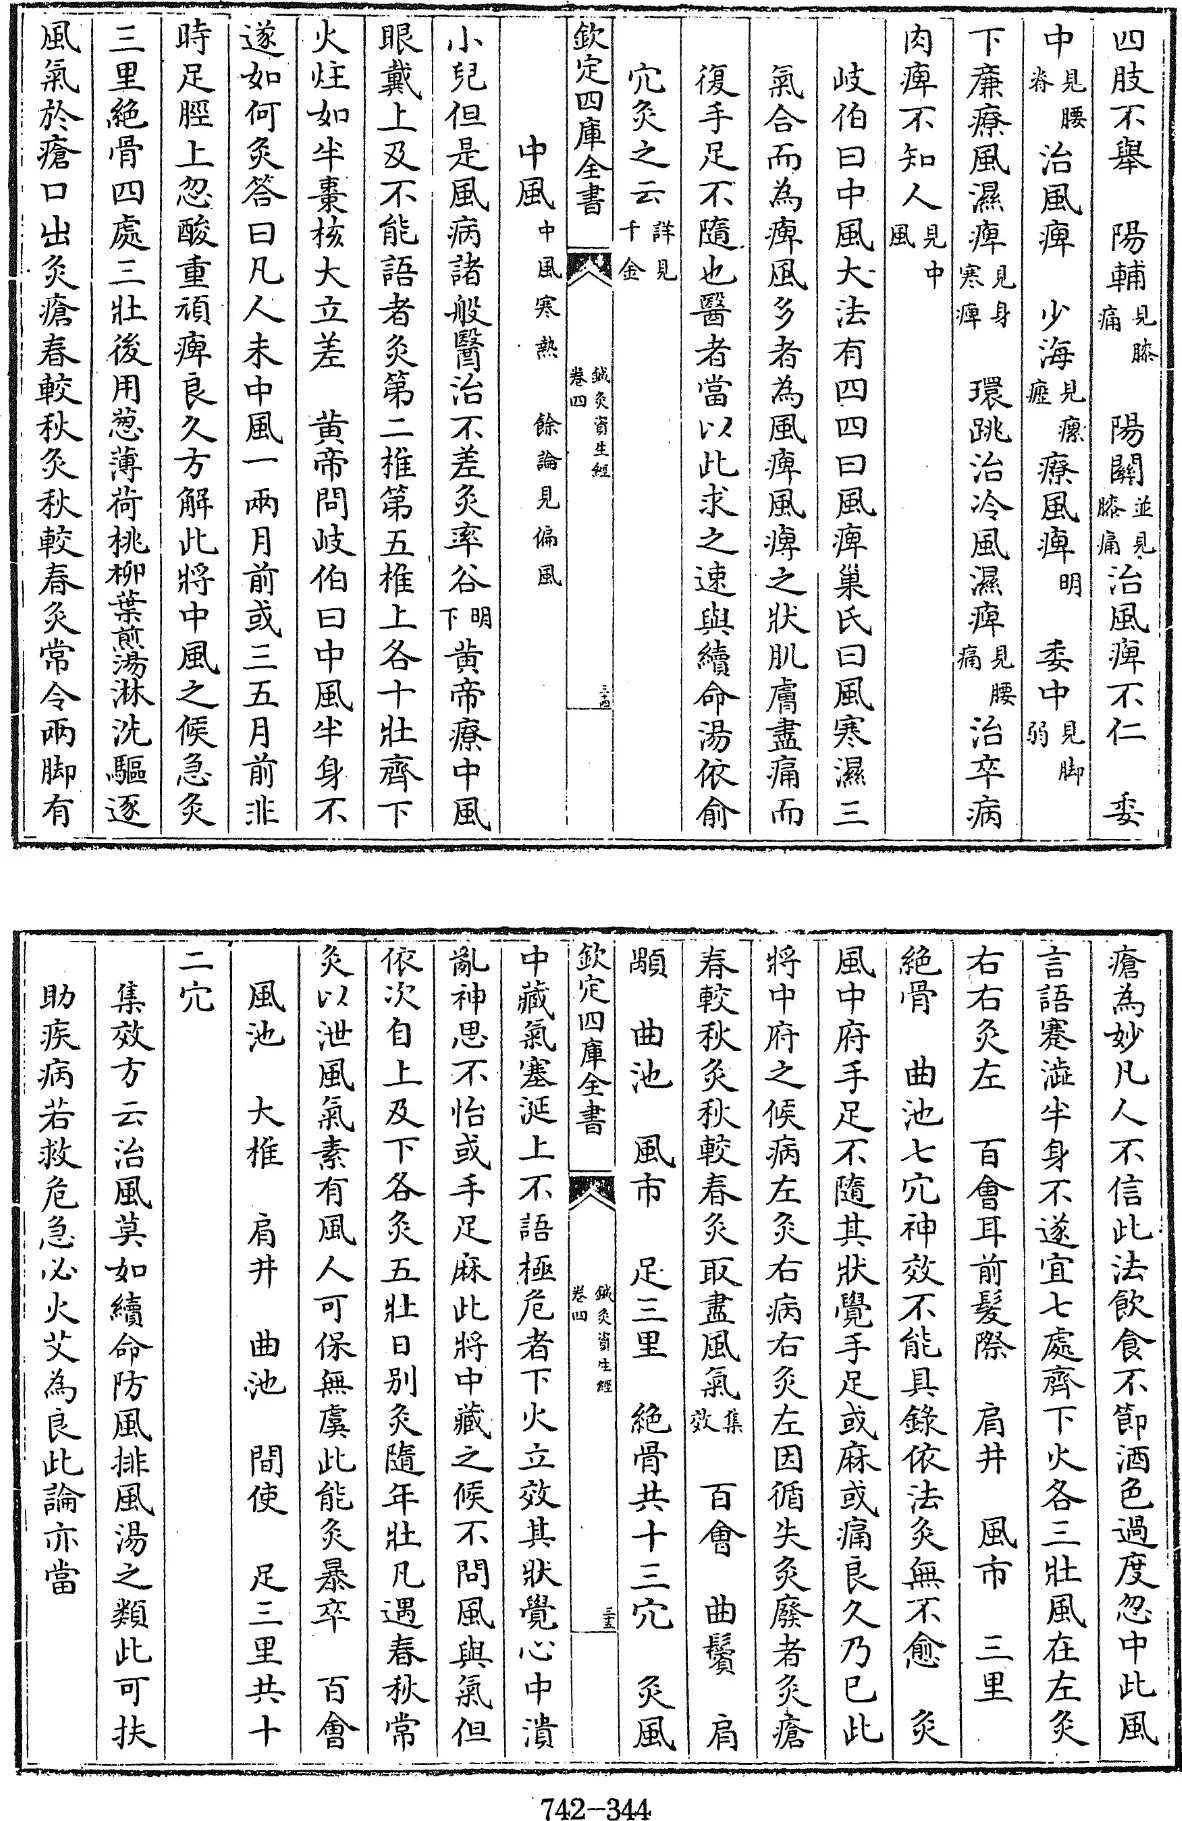 四肢不舉　陽輔見膝痛　陽關並見膝痛治風痺不仁　委
中見腰脊治風痺　少海見瘰癧療風痺明　委中見脚弱
下廉療風濕痺見身寒痺　環跳治冷風濕痺見腰痛治卒病
肉痺不知人見中風
岐伯曰中風大法有四四曰風痺巢氏曰風寒濕三
氣合而為痺風多者為風痺風痺之狀肌膚盡痛而
復手足不隨也醫者當以此求之速與續命湯依俞
穴灸之云詳見千金
欽定四庫全書　鍼灸資生經卷四　三十四
中風中風寒熱　餘論見偏風
小兒但是風病諸般醫治不差灸率谷明下黃帝療中風
眼戴上及不能語者灸第二椎第五椎上各十壯齊下
火炷如半棗核大立差　黃帝問岐伯曰中風半身不
遂如何灸答曰凡人未中風一兩月前或三五月前非
時足脛上忽酸重頑痺良久方解此將中風之候急灸
三里絶骨四處三壯後用葱薄荷桃柳葉煎湯淋洗驅逐
風氣於瘡口出灸瘡春較秋灸秋較春灸常令兩脚有
瘡為妙凡人不信此法飲食不節酒色過度忽中此風
言語蹇澁半身不遂宜七處齊下火各三壯風在左灸
右右灸左　百會耳前髮際　肩井　風市　三里
絶骨　曲池七穴神效不能具錄依法灸無不愈　灸
風中府手足不隨其狀覺手足或麻或痛良久乃已此
將中府之候病左灸右病右灸左因循失灸廢者灸瘡
春較秋灸秋較春灸取盡風氣集效　百會　曲鬢　肩
顒　曲池　風市　足三里　絶骨共十三穴　灸風
欽定四庫全書　鍼灸資生經卷四　三十五
中藏氣塞涎上不語極危者下火立效其狀覺心中潰
亂神思不怡或手足麻此將中藏之候不問風與氣但
依次自上及下各灸五壯日別灸隨年壯凡遇春秋常
灸以泄風氣素有風人可保無虞此能灸暴卒　百會
風池　大椎　肩井　曲池　間使　足三里共十
二穴
集效方云治風莫如續命防風排風湯之類此可扶
助疾病若救危急必火艾為良此論亦當
742-344